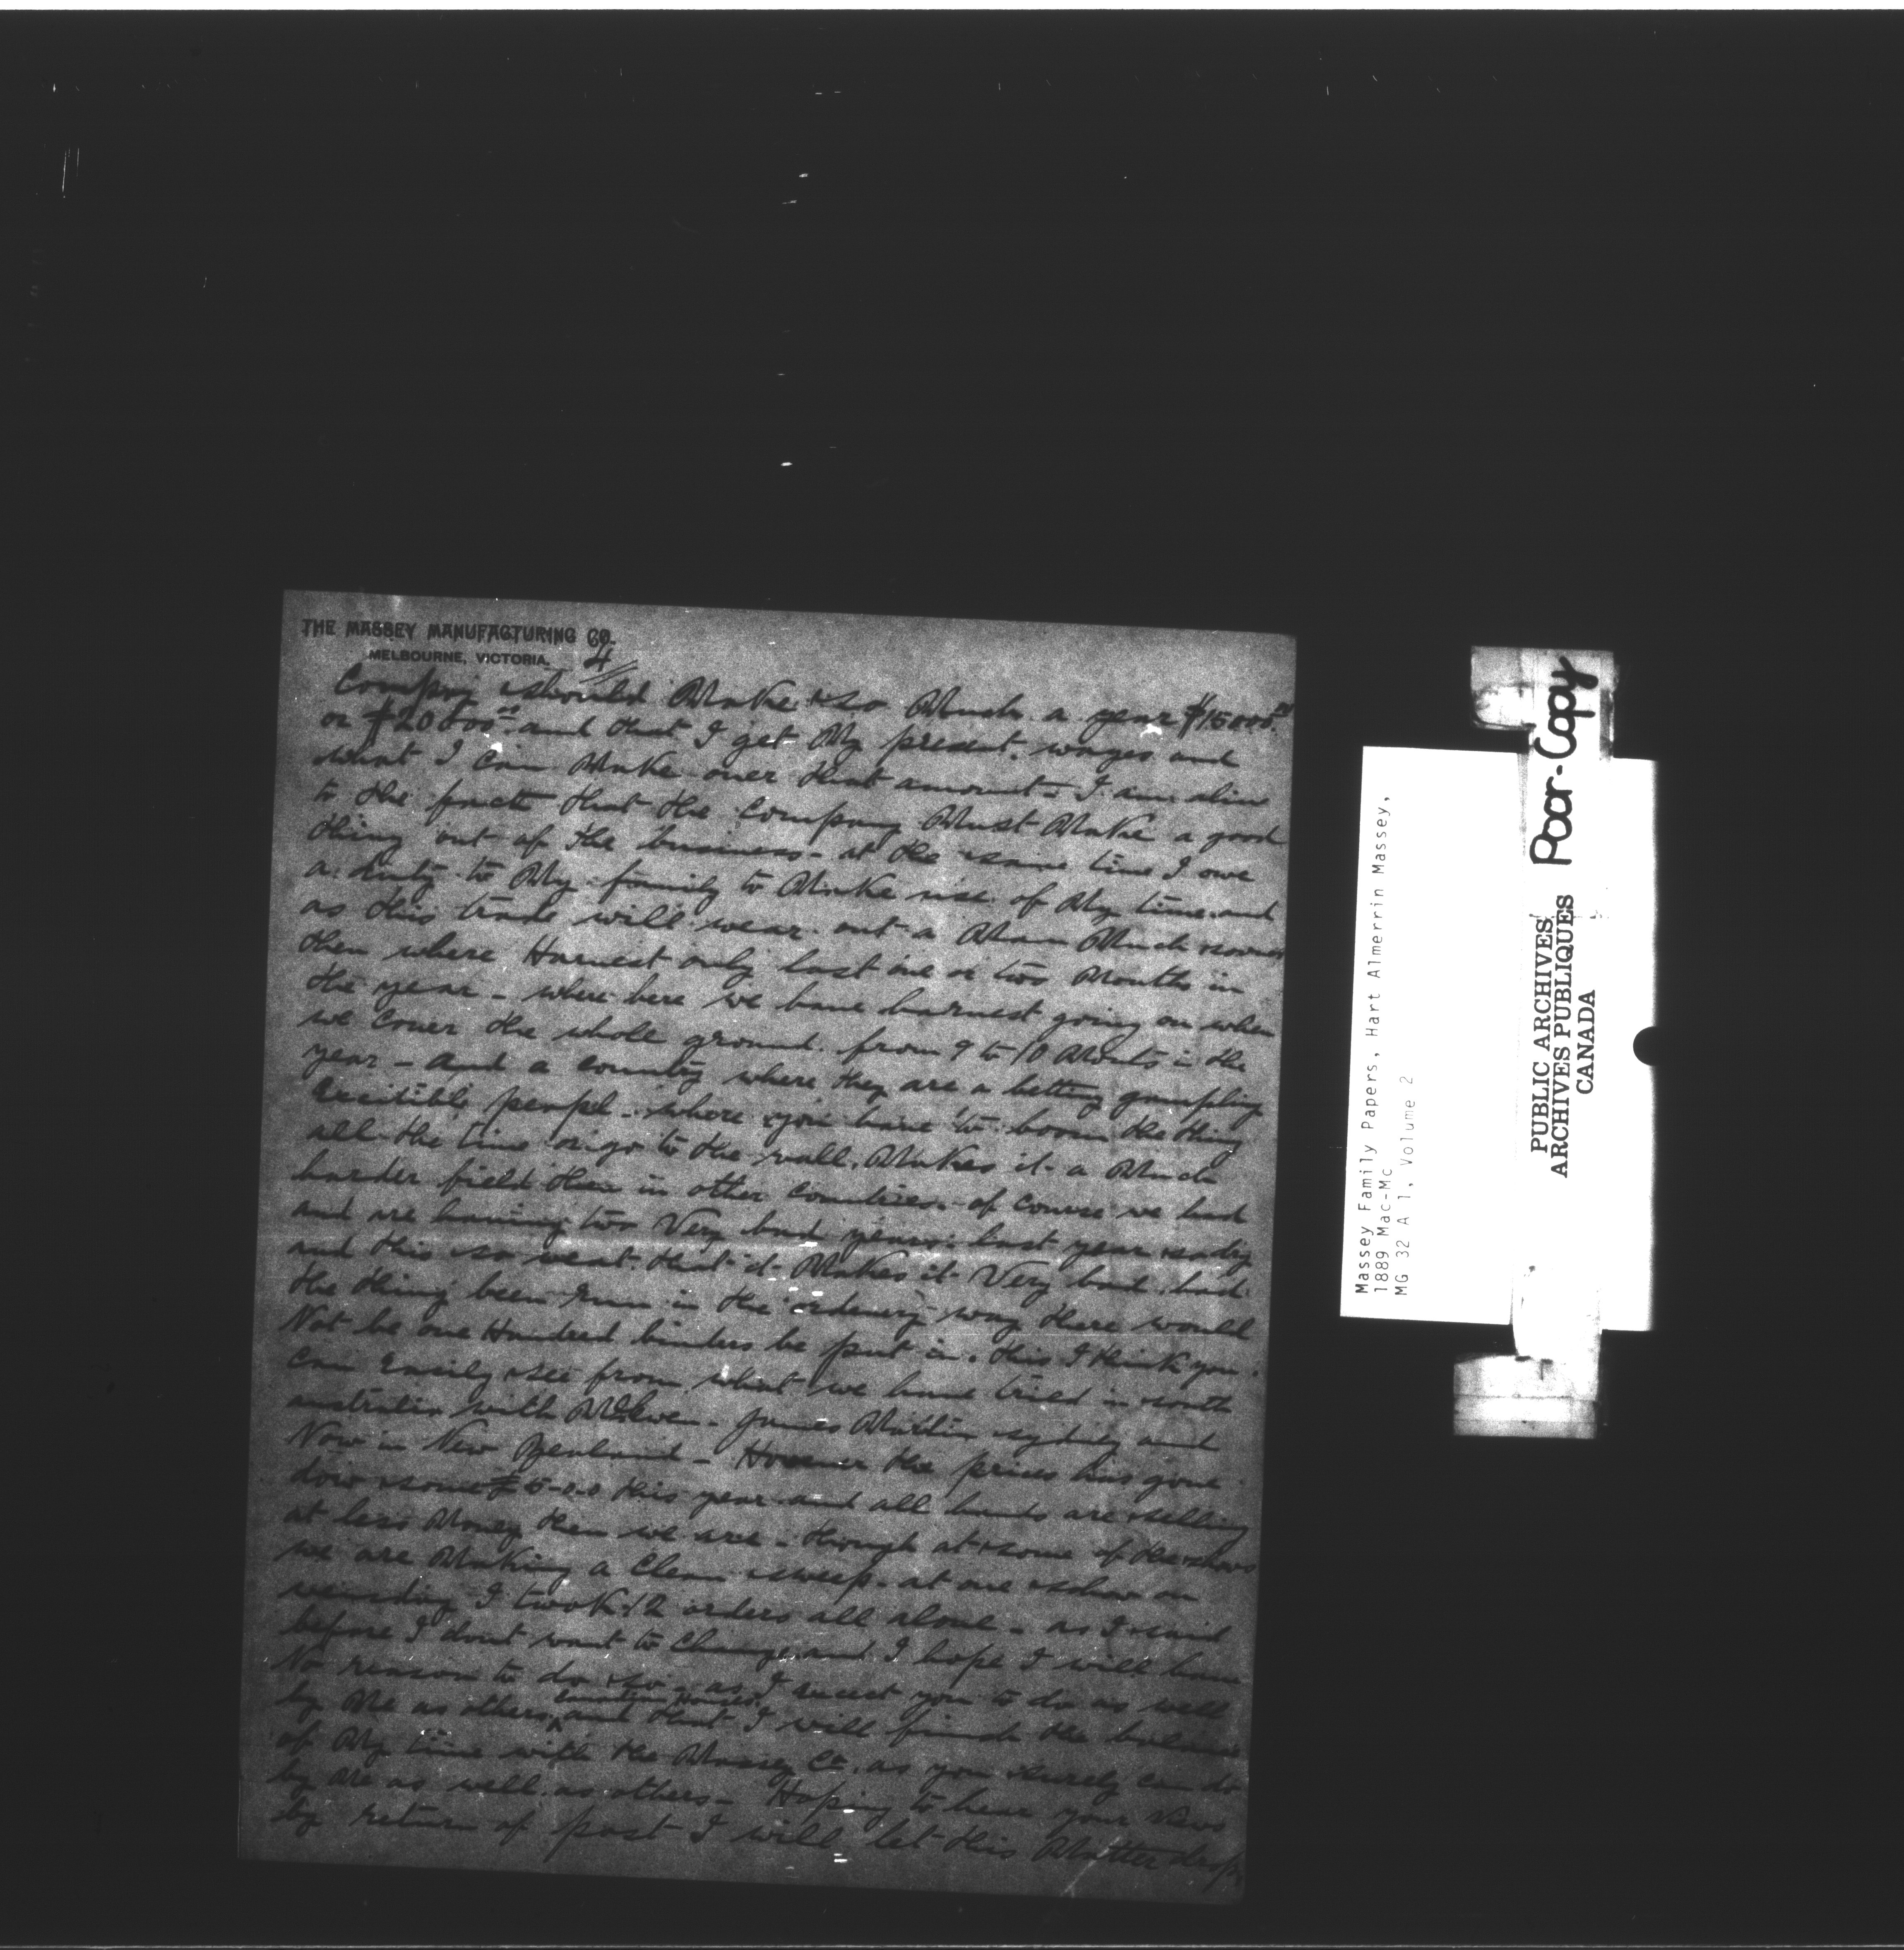 THE MASSEY MANUFACTURING CO.
MELBOURNE, VICTORIA.
4
Compny should Make so Much a year $15000.00
or $20000.00 and that I get My present wages and
what I can Make over that amount - I am alive
to the facts that the Company Must Make a good
thing out of the business - at the same time I owe
a duty to My family to Make use of My time and
as this trade will wear out a Man Much sooner
then where Harvest only last one or two Months in
the year - where here we have harvest going on when
we cover the whole ground from 9 to 10 Monts in the
year - and a country where they are a betting gambling
excitible peopel - where you have to boom the thing
all the time or go to the wall. Makes it a Much
harder field then in other countries - of course we had
and are having two Very bad years. last year
and this so weat that it Makes it Very bad. had
the thing been run in the ordenery way there would
Not be one Hundred binders be put in. this I think you
can easily see from what we have tried in south
australia with James Martin sydney and
Now in New Zealand - However the prices has gone
down some £5-0-0 this year and all hands are selling
at less Money then we are - though at some of the shows
we are Making a Clean sweep - at one show on
I twok 12 orders all alone - as I said
before I dont want to Change and I hope I will have
No reason to do so - as I you to do as well
by Me as others and that I will finish the balance
of My time with the Massey Co. as you surely can do
by Me as well as others - Hoping to hear your views
by return of post I will let this Matter drop
Massey Family Papers, Hart Almerrin Massey,
1889 Mac-Mc
MG 32 A 1, Volume 2
Poor-Copy
PUBLIC ARCHIVES
ARCHIVES PUBLIQUES
CANADA